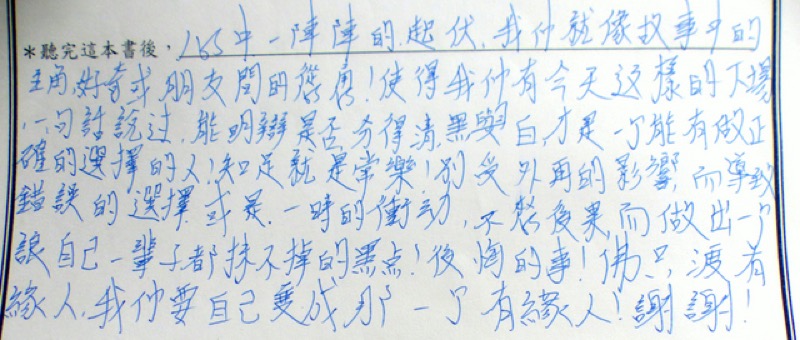 *聽完這本書後，心中一陣陣的起伏，我们就像故事中的
主角，好奇或朋友間的慫恿！使得我们有今天这樣的下場
，一句話說过，能明辯是否分得清黑與白，才是一个能有做正
確的選擇的人！知足就是常樂！別受外再的影響，而導致
錯誤的選擇，或是一時的衝动，不答後果，而做出一个
讓自己一輩子都抹不掉的黑点！後悔的事！佛只渡有
緣人，我们要自己變成那一个有緣人！謝謝！